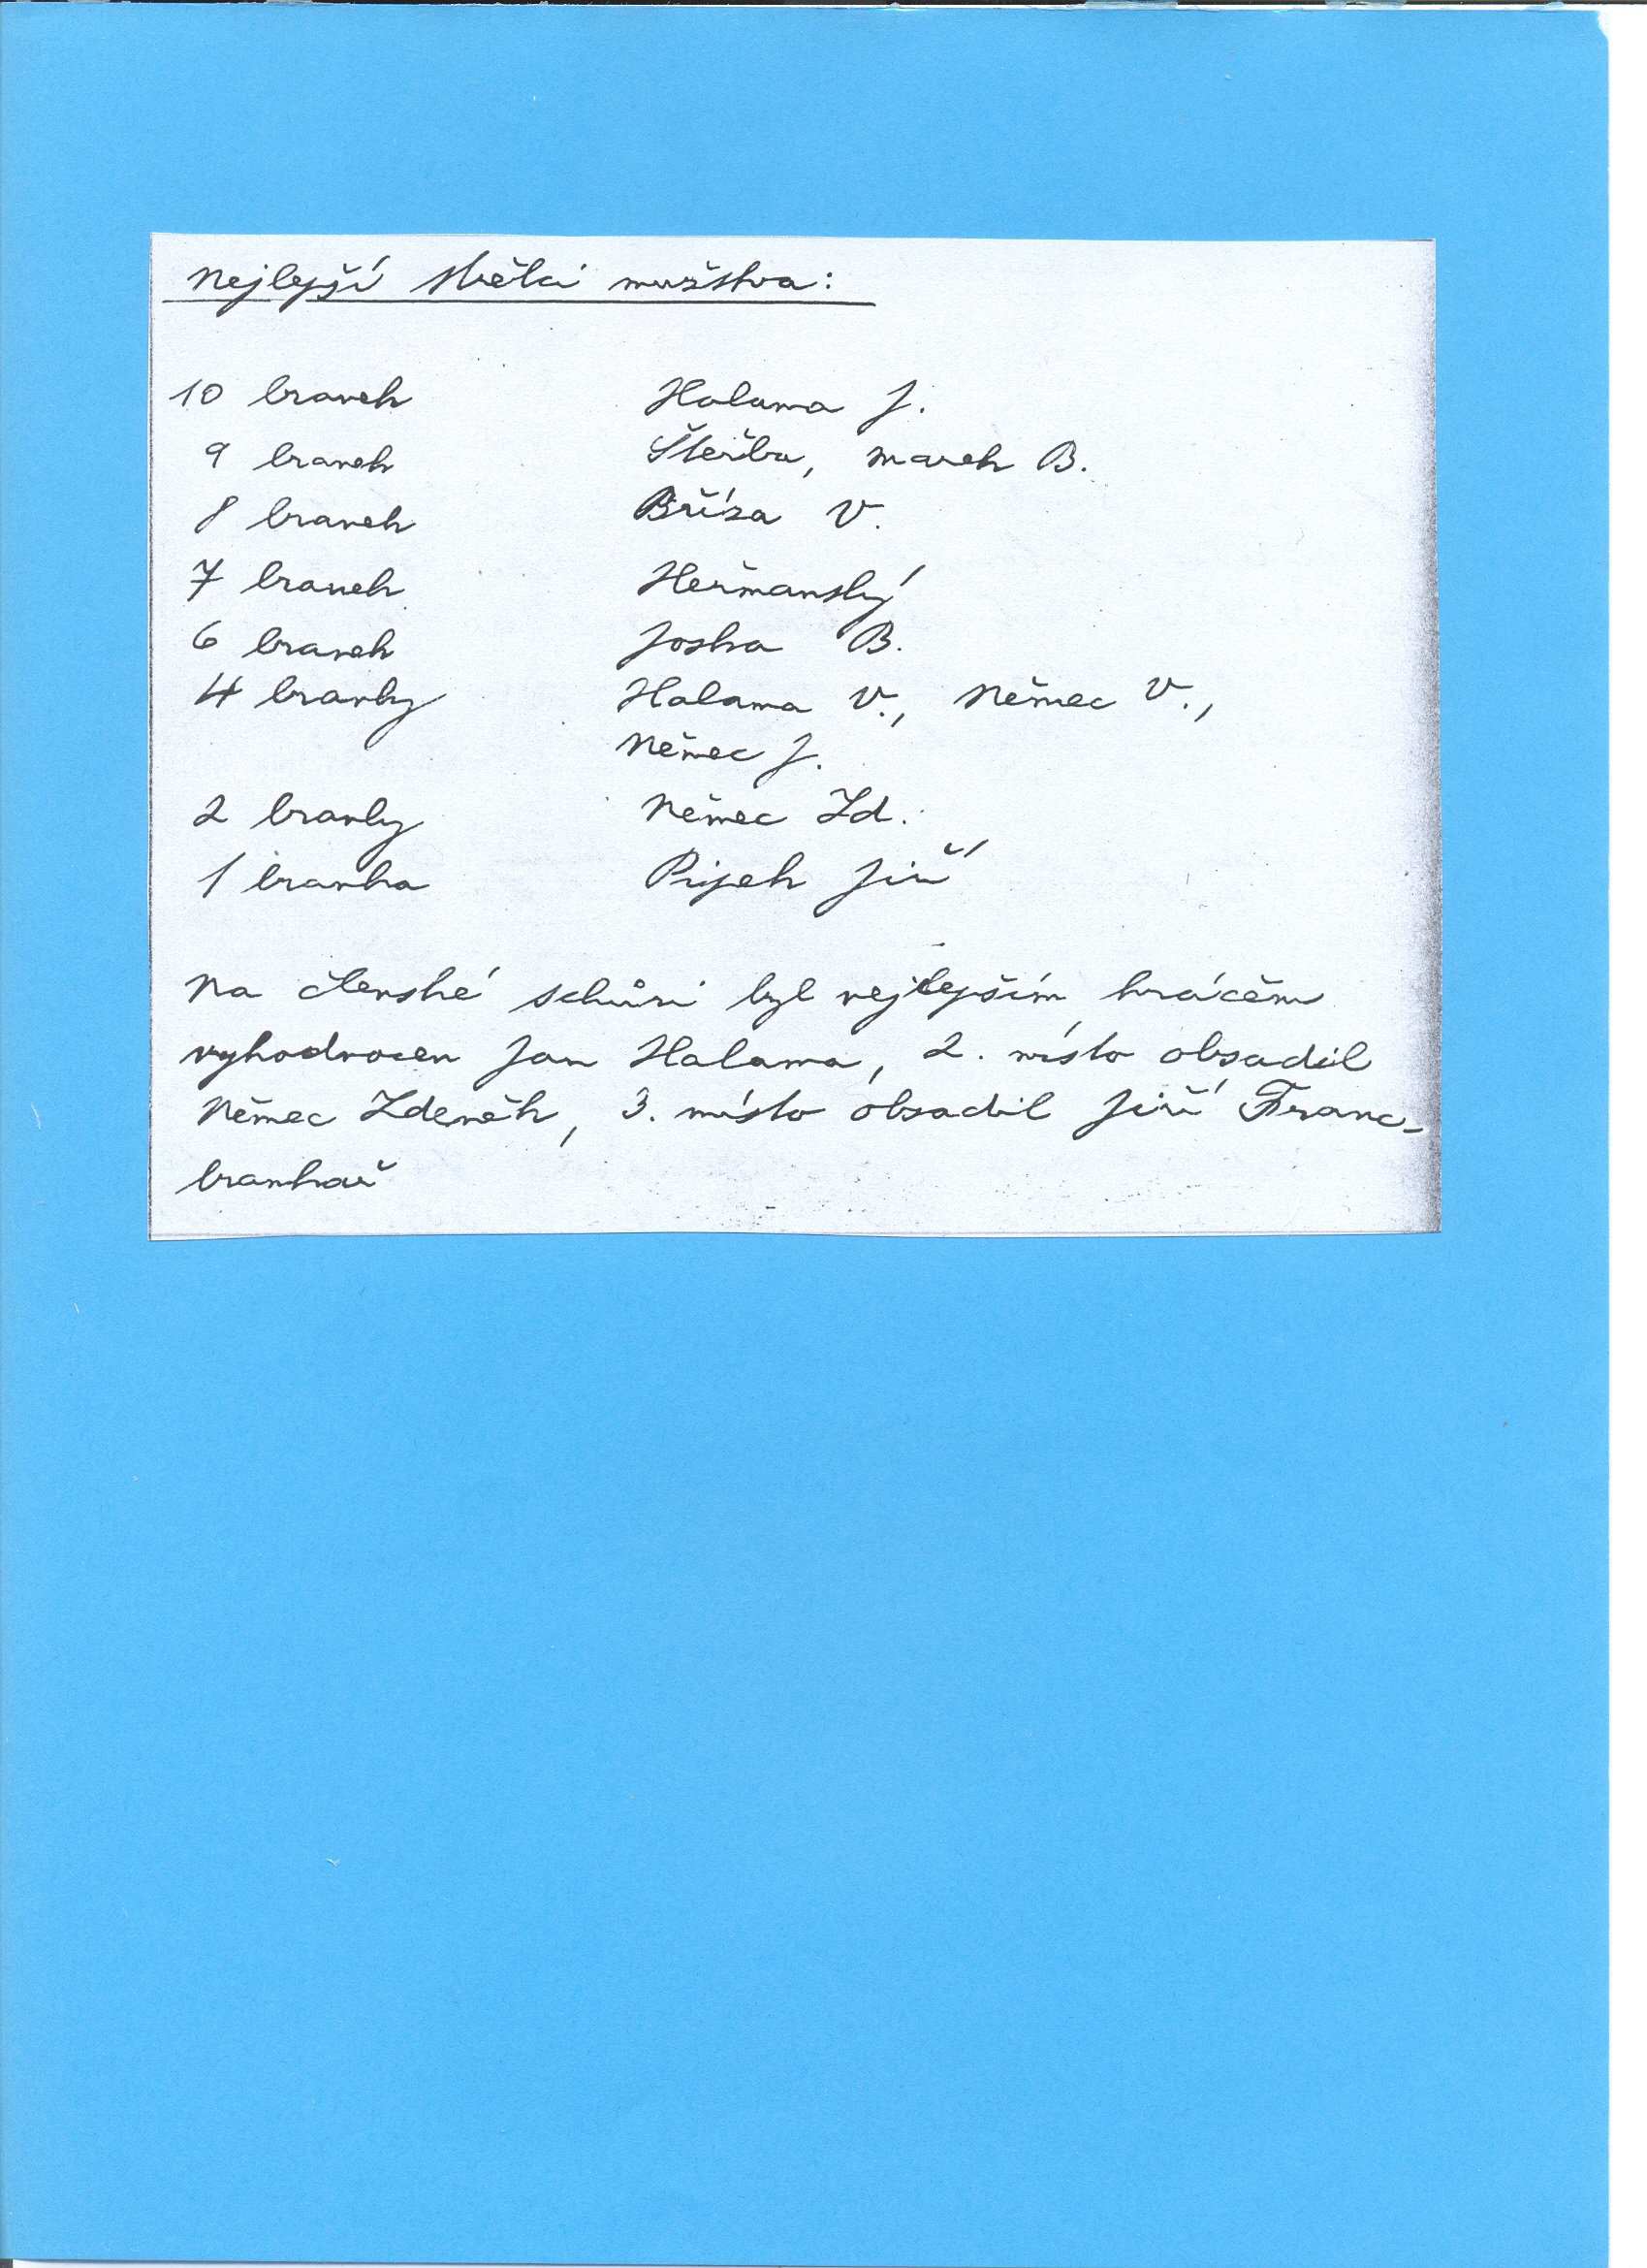 Nejlepší střelci mužstva:
10 branek Halama J.
9 branek Štěrba, Marek B.
8 branek Bříza V.
7 branek Heřmanský
6 branek Joska B.
4 branky Halama V., Němec V.,
Němec J.
2 branky Němec Zd.
1 branka Jiří
Na členské schůzi byl nejlepším hráčem
vyhodnocen Jan Halama, 2. místo obsadil
Němec Zdeněk, 3. místo obsadil Jiří Franc-
brankář